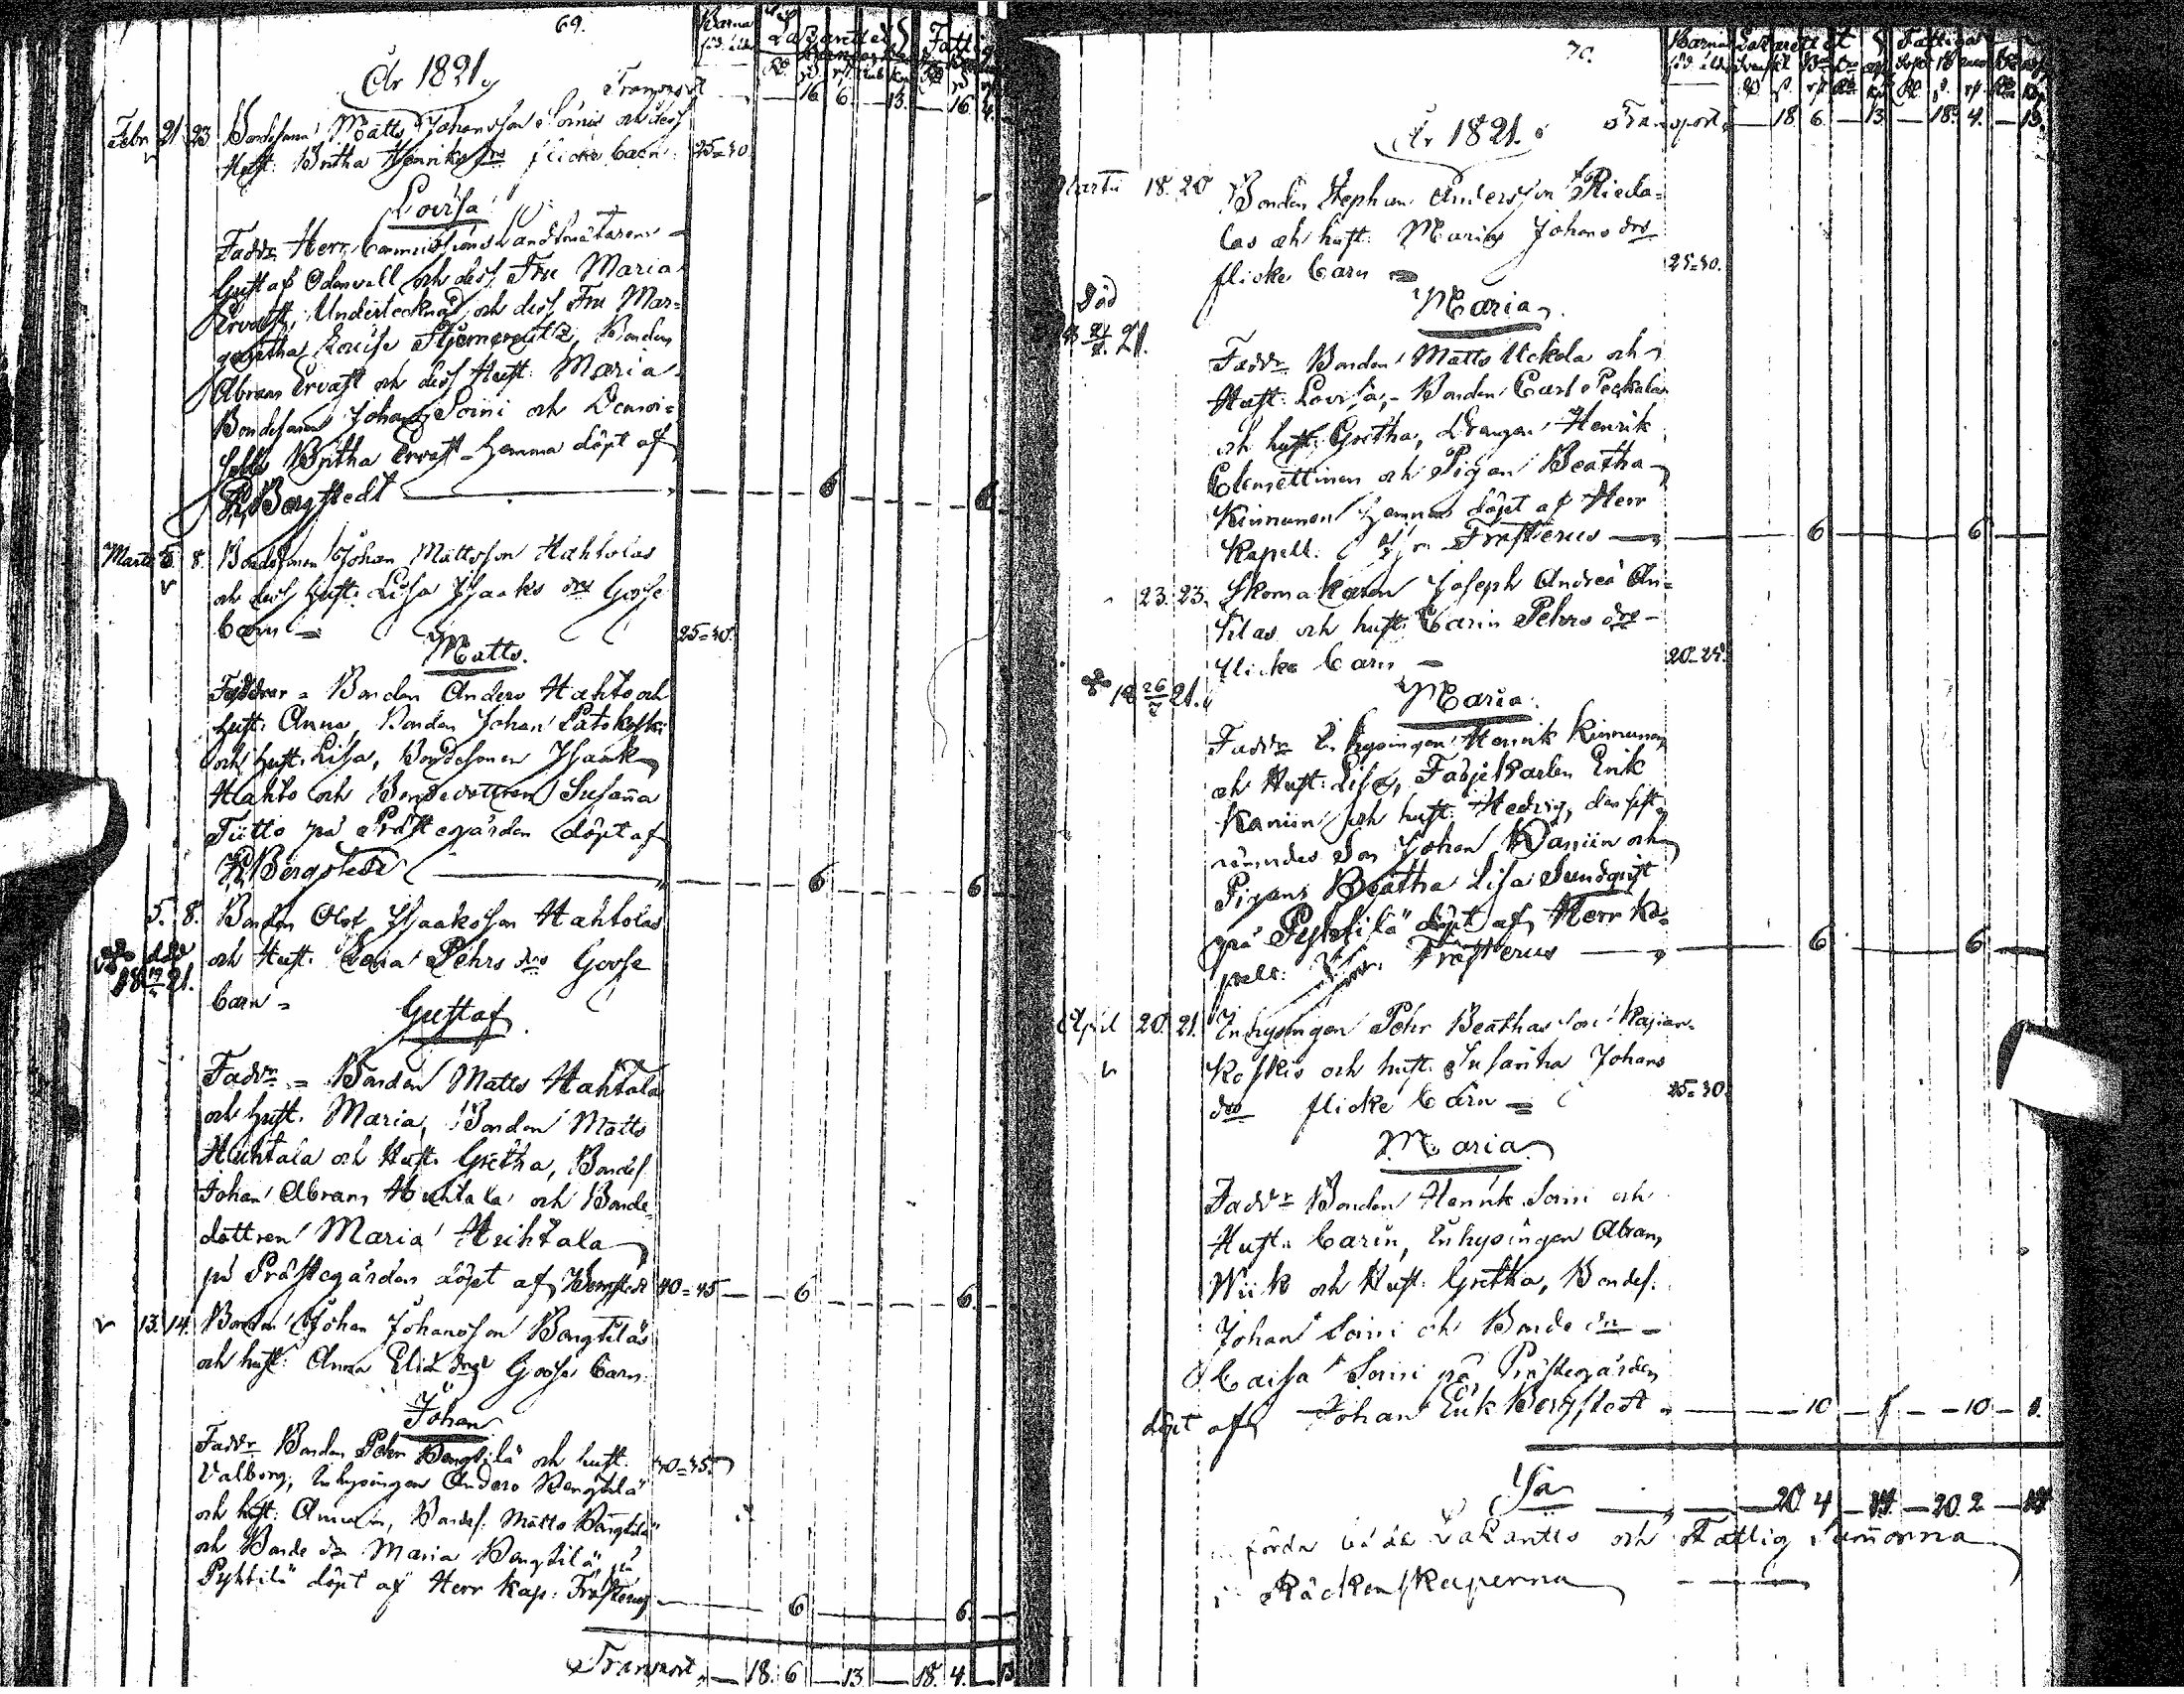 69.
År 1821
Transport — — 16 6 — 13 — 16 4
Febr 21 23 Bondesonen Matts Johansson Soinis och dess
Hust: Britha Henriks drs flicke barn: 25=30
Lovisa
Faddr Herr Commissions Landtmätaren
Gustaf Odenwall och dess Fru Maria
Ervast, Undertecknad och dess Fru Mar=
garetha Louise Stjerncreutz, Bonden
Abram Ervast och dess Hust: Maria
Bondesonen Johan Soini och Demoi=
selle Britha Ervast hemma döpt af
Bergstedt — 6 — 6
Martii 5. 8. Bondesonen Johan Mattsson Hahtolas
och dess hust: Lisa Isaaks drs Gosse
barn = 25=30.
Matts.
Faddrar = Bonden Anders Hahto och
hust: Anna, Bonden Johan Patokoski
och hust: Lisa, Bondesonen Isaak
Hahto och Bondedottren Susanna
Tiitto på Prästegården döpt af
Bergstedt — 6 — 6
5. 8. Bonden Olof Isaaksson Hahtolas
och Hust: Pehrs drs Gosse
barn =
död
18 21.
Gustaf
Faddr = Bonden Matts Hahtala
och hust. Maria, Bonden Matts
Huhtala och Hust: Gretha, Bondes.
Johan Abram Huhtala och Bonde
dottren Maria Huhtala
på Prästegården döpt af Bergstedt 40=45 — 6 — 6
13. 14. Bonden Johan Johansson Bengtiläs
och hust: Anna Erics drs Gosse barn.
Johan
Faddr Bonden Pehr Bengtilä och hust. 40=45
Valborg, Inhysingen Anders Bengtilä
och hust: Anna, Bondes. Matts Bengtilä
och Bonde dr Maria Bengtilä på
Pyhtilä döpt af Herr Kap: Frosterus — 6 — 6
Transport — 18. 6 — 13 — 18. 4. — 13
70.
År 1821.
Transport — 18. 6. — 13 — 18. 4. — 13.
Martii 18. 20 Bonden Stephan Andersson Riecko=
las och hust: Maria Johans drs
flicke barn = 25=30.
Maria
Död
21.
Faddr Bonden Matts Uckola och
Hust: Lovisa, Bonden Carl Peckala
och hust: Gretha, Drängen Henrik
Clemettinen och Pigan Beatha
Kinnunen hemma döpt af Herr
Kapell: Frosterus — 6 — 6
23. 23. Skomakaren Joseph Andreæ An=
tilas och hust: Carin Pehrs drs
flicke barn = 20=25.
18 26 21.
Maria
Faddr Inhysingen Henrik Kinnunen
och Hust: Lisa, Färjekarlen Erik
Kaniin och hust: Hedvig, den sist
nämndes Son Johan Kaniin och
Pigan Beatha Lisa Sundqvist
på Pyhtilä döpt af Herr Ka=
pell: Frosterus — 6 — 6
April 20. 21. Inhysingen Pehr Beathas son
Koskis och hust: Susanna Johans
drs flicke barn = 25=30.
Maria
Faddr Bonden Henrik Soini och
Hust: Carin, Inhysingen Abram
Wiik och Hust: Gretha, Bondes:
Johan Soini och Bonde dr
Caisa Soini på Prästegården
döpt af Johan Erik Bergstedt — 10 — 10
S:a — 20 4 — — 20. 2 —
förda både Lazaretts och Fattig Summorna
i Räckenskaperna